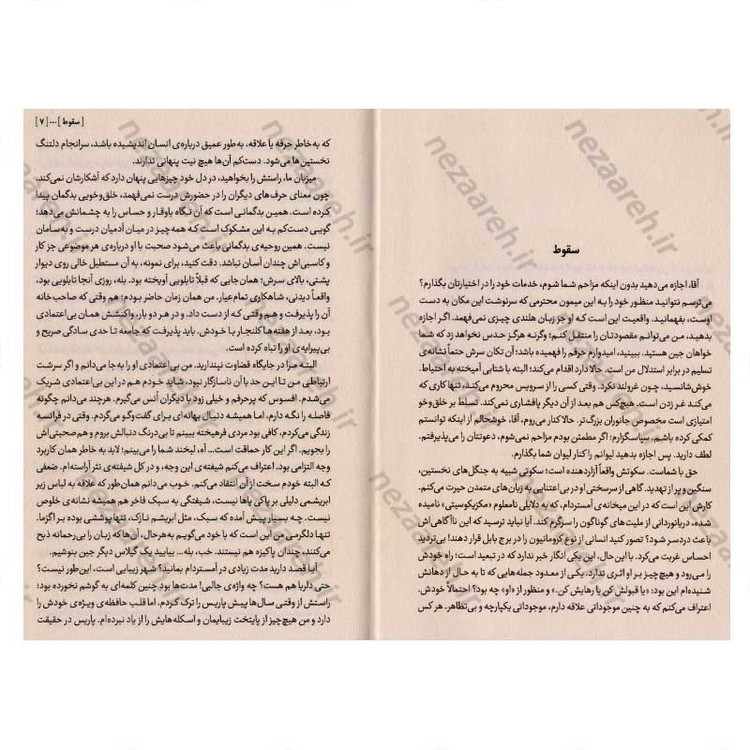 سقوط
آقا، اجازه می‌دهید بدون اینکه مزاحم شما شوم، خدمات خود را در اختیارتان بگذارم؟
می‌ترسم نتوانید منظور خود را به این میمون محترمی که سرنوشت این مکان به دست
اوست، بفهمانید. واقعیت این است که او جز زبان هلندی چیزی نمی‌فهمد. اگر اجازه
بدهید، من می‌توانم مقصودتان را منتقل کنم؛ وگرنه هرگز حدس نخواهد زد که شما
خواهان جین هستید. ببینید، امیدوارم حرفم را فهمیده باشد: آن تکان سرش حتماً نشانه‌ی
تسلیم در برابر استدلال من است. حالا دارد اقدام می‌کند؛ البته با شتابی آمیخته به احتیاط.
خوش‌شانسید، چون غرولند نکرد. وقتی کسی را از سرویس محروم می‌کند، تنها کاری که
می‌کند غر زدن است. هیچ‌کس هم بعد از آن دیگر پافشاری نمی‌کند. تسلط بر خلق‌وخو
امتیازی است مخصوص جانوران بزرگ‌تر. حالا کنار می‌روم، آقا، خوشحالم از اینکه توانستم
کمکی کرده باشم. سپاسگزارم؛ اگر مطمئن بودم مزاحم نمی‌شوم، دعوتتان را می‌پذیرفتم.
لطف دارید. پس اجازه بدهید لیوانم را کنار لیوان شما بگذارم.
حق با شماست. سکوتش واقعاً آزاردهنده است؛ سکوتی شبیه به جنگل‌های نخستین،
سنگین و پر از تهدید. گاهی از سرسختی او در بی‌اعتنایی به زبان‌های متمدن حیرت می‌کنم.
کارش این است که در این میخانه‌ی آمستردام، که به دلایلی نامعلوم «مکزیکوسیتی» نامیده
شده، دریانوردانی از ملیت‌های گوناگون را سرگرم کند. آیا نباید ترسید که این ناآگاهی‌اش
باعث دردسر شود؟ تصور کنید انسانی از نوع کرومانیون را در برج بابل قرار دهند! بی‌تردید
احساس غربت می‌کرد. با این حال، این یکی انگار خبر ندارد که در تبعید است؛ راه خودش
را می‌رود و هیچ‌چیز بر او اثری ندارد. یکی از معدود جمله‌هایی که تا به حال از دهانش
شنیده‌ام این بود: «یا قبولش کن یا رهایش کن.» و منظور از «او» چه بود؟ احتمالاً خودش.
اعتراف می‌کنم که به چنین موجوداتی علاقه دارم، موجوداتی یکپارچه و بی‌تظاهر. هر کس
[ سقوط ]---[ ۷ ]
که به خاطر حرفه یا علاقه، به‌طور عمیق درباره‌ی انسان اندیشیده باشد، سرانجام دلتنگ
نخستین‌ها می‌شود. دست‌کم آن‌ها هیچ نیت پنهانی ندارند.
میزبان ما، راستش را بخواهید، در دل خود چیزهایی پنهان دارد که آشکارشان نمی‌کند.
چون معنای حرف‌های دیگران را در حضورش درست نمی‌فهمد، خلق‌وخویی بدگمان پیدا
کرده است. همین بدگمانی است که آن نگاه باوقار و حساس را به چشمانش می‌دهد؛
گویی دست‌کم به این مشکوک است که همه‌چیز در میان آدمیان درست و به‌سامان
نیست. همین روحیه‌ی بدگمانی باعث می‌شود صحبت با او درباره‌ی هر موضوعی جز کار
و کاسبی‌اش چندان آسان نباشد. دقت کنید، برای نمونه، به آن مستطیل خالی روی دیوار
پشتی، بالای سرش؛ همان‌جایی که قبلاً تابلویی آویخته بود. بله، روزی آنجا تابلویی بود
واقعاً دیدنی، شاهکاری تمام‌عیار. من همان زمان حاضر بودم؛ هم وقتی که صاحب‌خانه
آن را پذیرفت و هم وقتی که از دست داد. و در هر دو بار، واکنشش همان بی‌اعتمادی
بود، بعد از هفته‌ها کلنجار با خودش. باید پذیرفت که جامعه تا حدی سادگی صریح و
بی‌پیرایه‌ی او را تباه کرده است.
البته مرا در جایگاه قضاوت نپندارید. من بی‌اعتمادی او را به‌جا می‌دانم و اگر سرشت
ارتباطی من تا این حد با آن ناسازگار نبود، شاید خودم هم در این بی‌اعتمادی شریک
می‌شدم. افسوس که پرحرفم و خیلی زود با دیگران اُنس می‌گیرم. هرچند می‌دانم چگونه
فاصله را نگه دارم، اما همیشه دنبال بهانه‌ای برای گفت‌وگو می‌گردم. وقتی در فرانسه
زندگی می‌کردم، کافی بود مردی فرهیخته ببینم تا بی‌درنگ دنبالش بروم و هم‌صحبتی‌اش
را بجویم. اگر این کار حماقت است... آه، لبخند شما را می‌بینم؛ لابد به خاطر همان کاربرد
وجه التزامی بود. اعتراف می‌کنم شیفته‌ی این وجه، و در کل شیفته‌ی نثر آراسته‌ام. ضعفی
که البته خودم سخت از آن انتقاد می‌کنم. خوب می‌دانم همان‌طور که علاقه به لباس زیر
ابریشمی دلیلی بر پاکی پاها نیست، شیفتگی به سبک فاخر هم همیشه نشانه‌ی خلوص
نیست. چه بسیار پیش آمده که سبک، مثل ابریشم نازک، تنها پوششی بوده بر اگزما.
تنها دلگرمی من این است که با خود می‌گویم به‌هرحال، آن‌ها که زبان را بی‌رحمانه ذبح
می‌کنند، چندان پاکیزه هم نیستند. خب، بله... بیایید یک گیلاس دیگر جین بنوشیم.
آیا قصد دارید مدت زیادی در آمستردام بمانید؟ شهر زیبایی است، این‌طور نیست؟
حتی دلربا هم هست؟ چه واژه‌ی جالبی! مدت‌ها بود چنین کلمه‌ای به گوشم نخورده بود؛
راستش از وقتی سال‌ها پیش پاریس را ترک کردم. اما قلب حافظه‌ی ویژه‌ی خودش را
دارد و من هیچ‌چیز از پایتخت زیبایمان و اسکله‌هایش را از یاد نبرده‌ام. پاریس در حقیقت
nezaareh.ir
nezaareh.ir
nezaareh.ir
nezaareh.ir
nezaareh.ir
nezaareh.ir